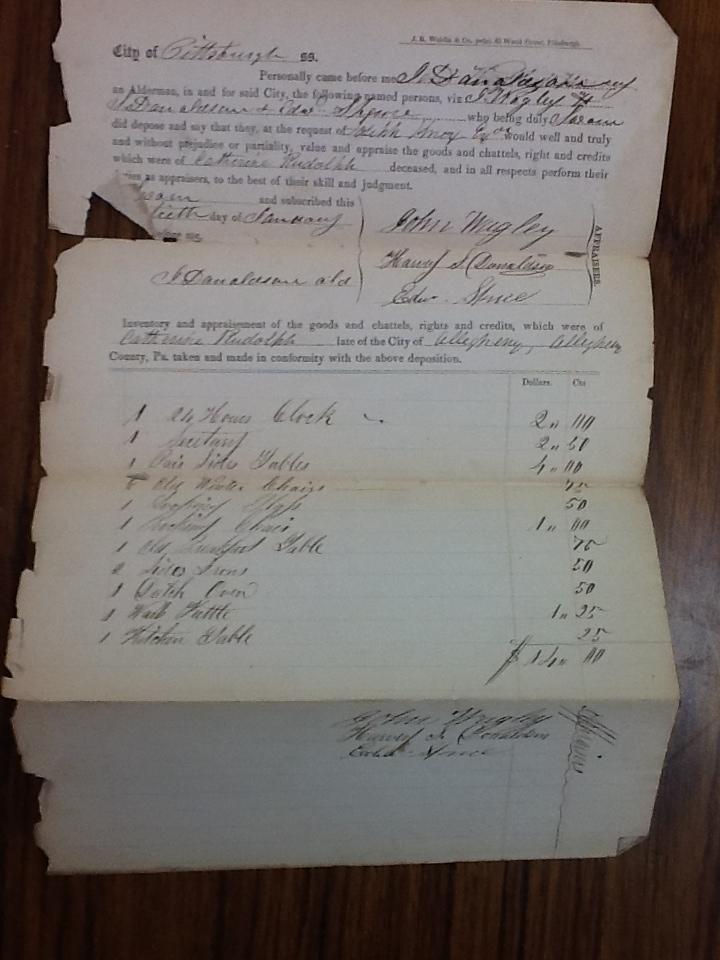 J. R. Weldin & Co. print, 63 Wood Street, Pittsburgh.
City of Pittsburgh ss.
Personally came before me J. Donaldson
an Alderman, in and for said City, the following named persons, viz J. Wagley H
S Donaldson & Edw. who being duly Sworn
did depose and say that they, at the request of Esqr would well and truly
and without prejudice or partiality, value and appraise the goods and chattels, right and credits
which were of Catherine Rudolph deceased, and in all respects perform their
duties as appraisers, to the best of their skill and judgment.
and subscribed this
day of January
before me
John Wagley
Harvey S Donaldson
Edw.
APPRAISERS.
J Donaldson ald
Inventory and appraisement of the goods and chattels, rights and credits, which were of
Catherine Rudolph late of the City of Allegheny, Allegheny
County, Pa. taken and made in conformity with the above deposition.
Dollars. Cts
1 24 Hours Clock 2 " 00
1 2 " 50
1 Pair Sides Tables 4 " 00
6 Old Chairs 75
1 Looking Glass 50
1 Rocking Chair 1 " 00
1 Old Breakfast Table 75
2 Irons 50
1 Dutch Oven 50
1 Wash Kettle 1 " 25
1 Kitchen Table 25
$ 14 " 00
John Wagley
Harvey S. Donaldson
Edw.